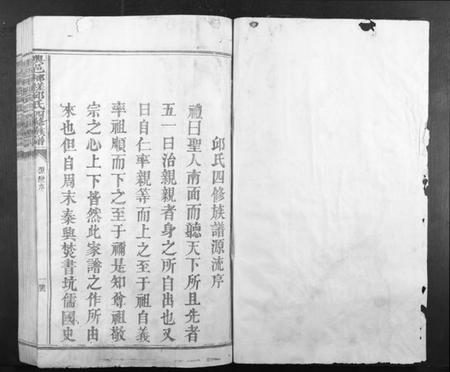 邱氏四修族譜源流序
禮曰聖人南面而聽天下所且先者
五一曰治親親者身之所自出也又
曰自仁率親等而上之至于祖自義
率祖順而下之至于禰是知尊祖敬
宗之心上下皆然此家譜之作所由
來也但自周末秦興焚書坑儒國史
邱氏四修族譜
序
一